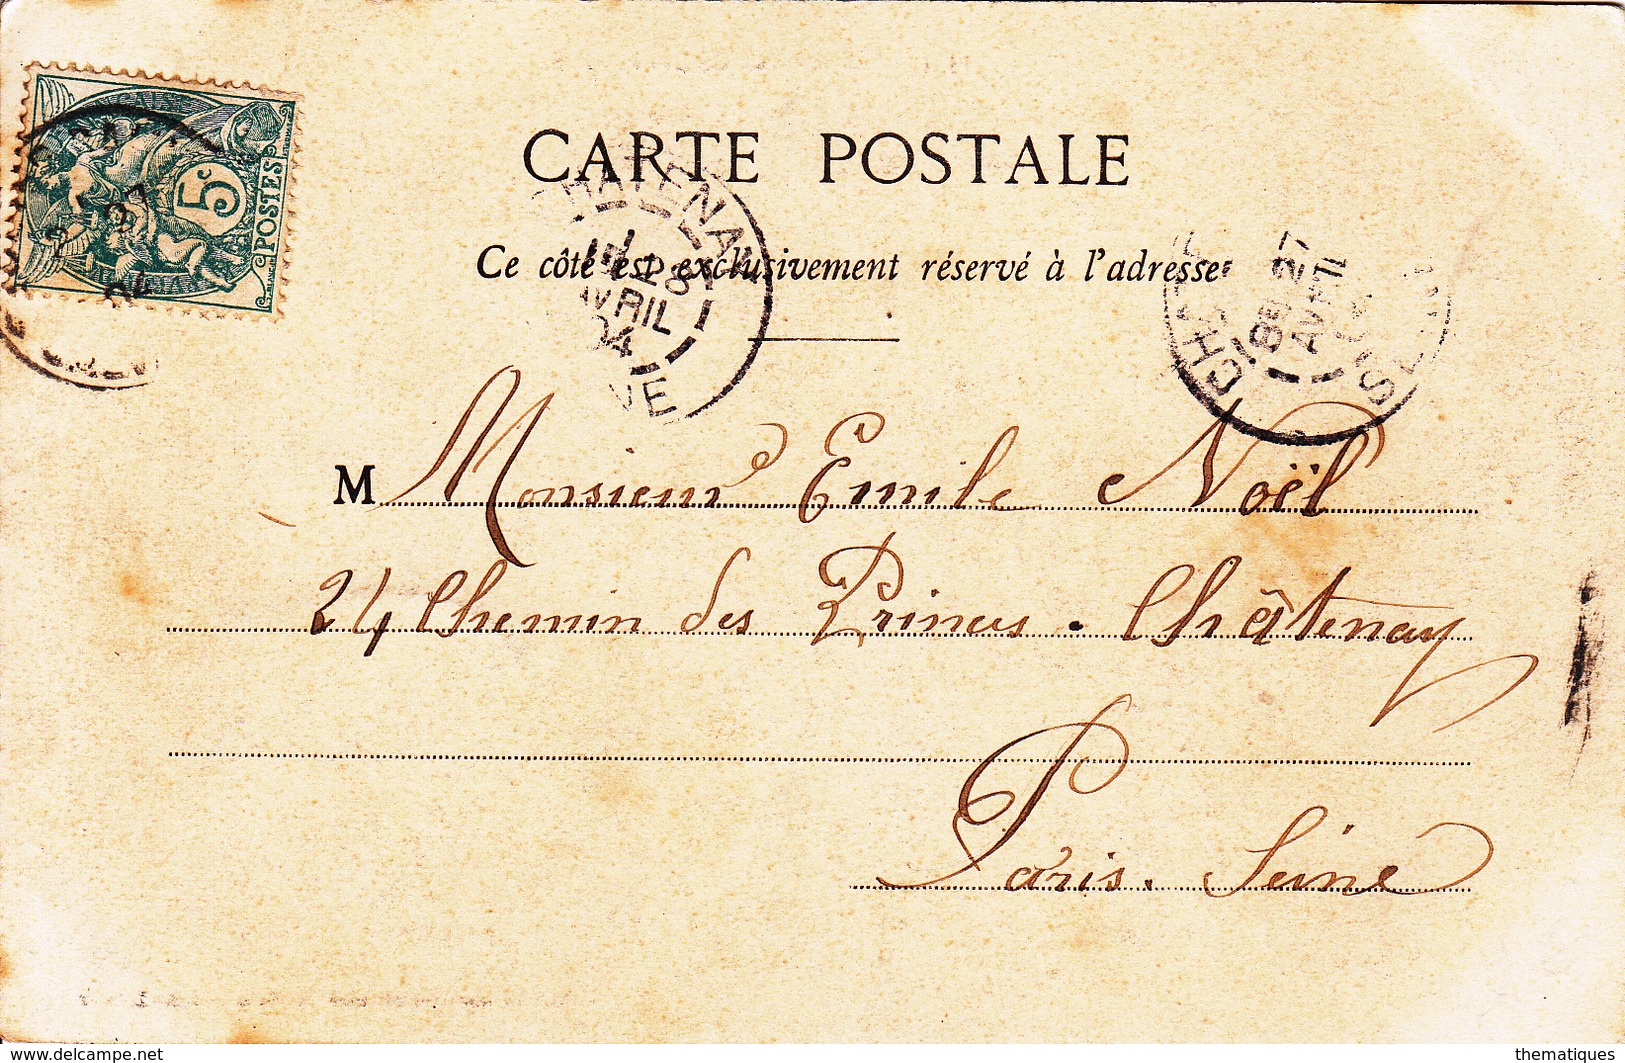 CARTE POSTALE
5c
POSTES
CHATENAY
28
AVRIL
04
27
AVRIL
Ce côté est exclusivement réservé à l'adresse
M Monsieur Emile Noël
24 Chemin des Princes. Châtenay
Paris. Seine
www.delcampe.net
thematiques